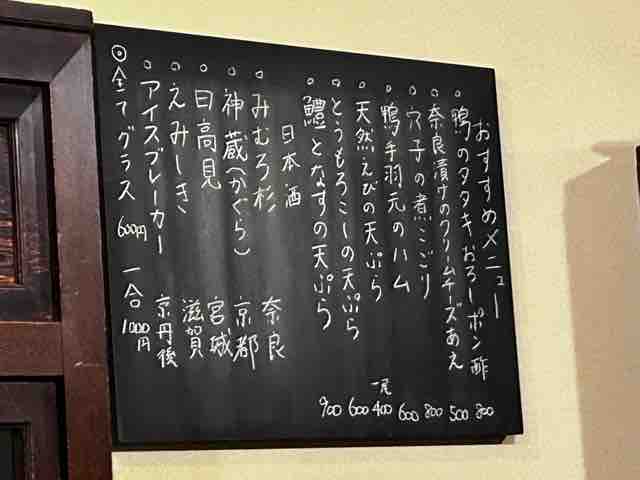 おすすめメニュー
○鴨のタタキおろしポン酢 800
○奈良漬けのクリームチーズあえ 500
○穴子の煮こごり 800
○鴨手羽元のハム 600
○天然えびの天ぷら 一尾 400
○とうもろこしの天ぷら 600
○鱧となすの天ぷら 900
日本酒
○みむろ杉 奈良
○神蔵(かぐら) 京都
○日高見 宮城
○えみしき 滋賀
○アイスブレーカー 京丹後
◎全てグラス 600円 一合 1000円